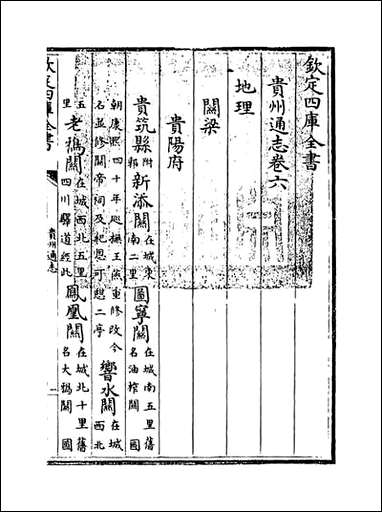 欽定四庫全書
貴州通志卷六
地理
關梁
貴陽府
貴筑縣附郭新添關在城東南二里圖寧關在城南五里舊名油榨關國
朝康熙四十年巡撫王燕重修改今名並修關帝祠及杞恩可憩二亭響水關在城西北
五里老鴉關在城西北五里四川驛道經此鳳凰關在城北十里舊名大鴉關國
欽定四庫全書
貴州通志
一